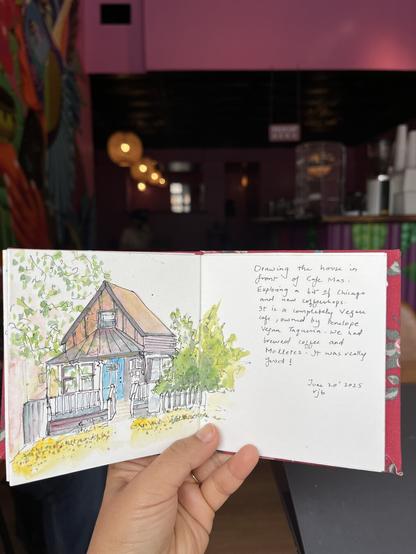 Drawing the house in
front of Cafe Mas.
Exploring a bit of Chicago
and new coffeeshops.
It is a completely Vegan
cafe, owned by Penelope
Vegan Taqueria. We had
brewed coffee and
Molletes. It was really
good!
June 20' 2025